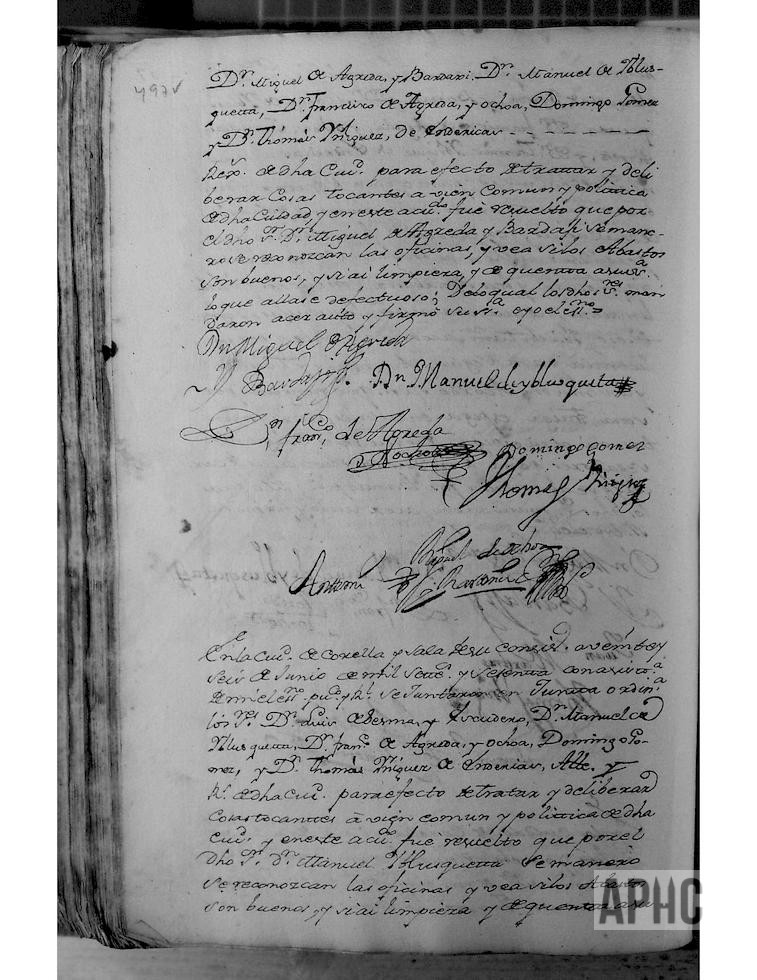 497v
Dn. Miguel de Agreda, y Bardaxi. Dn. Manuel de Yblus-
quetta, Dn. francisco de Agreda, y ochoa, Domingo Gomez
y Dn. thomás Yñiguez, de
Rex. de dha Ciud. para efecto de trattar y deli
berar Cosas tocantes à vien comun y politica
de dha Ciudad, y en este acdo. fue resuelto que por
el dho Sr. Dn. Miguel de Agreda y Bardaji semane-
ro se reconozcan las oficinas, y vea si los Abastos
son buenos, y si ai limpieza, y de quentta a su sa.
lo que allase defectuoso; Delo qual los dhos sres. man
daron acer auto y firmó su sa. e yo el ssno.
Dn Miguel de Agreda
Y Bardaxi. Dn Manuel de yblusqueta
Dn franco. de Agreda
Domingo Gomez
Thomas Yñiguez
Rafael de ochoa
Antemi
En la Ciud. de Corella y sala de su consistt. a veinte y
seis de Junio de mil Sette. y Setenta con asisa.
de mi el essno. ppco. y R. se Juntaron en Juntta ordina.
los Srs. Dn. Luis de Sesma, y Escudero, Dn. Manuel de
Yblusquetta, Dn. franco. de Agreda, y ochoa, Domingo Go-
mez, y Dn. thomás Yñiguez de Alle. y
R. de dha Ciud. para efecto de tratar y deliberar
Cosas tocanttes à vien comun y polittica de dha
Ciud. y en este acdo. fue resuelto que por el
dho Sr. Dn. Manuel Yblusquetta Semanero
se reconozcan las oficinas y vea si los Abastos
son buenos, y si ai limpieza y de quentta a su
APHC